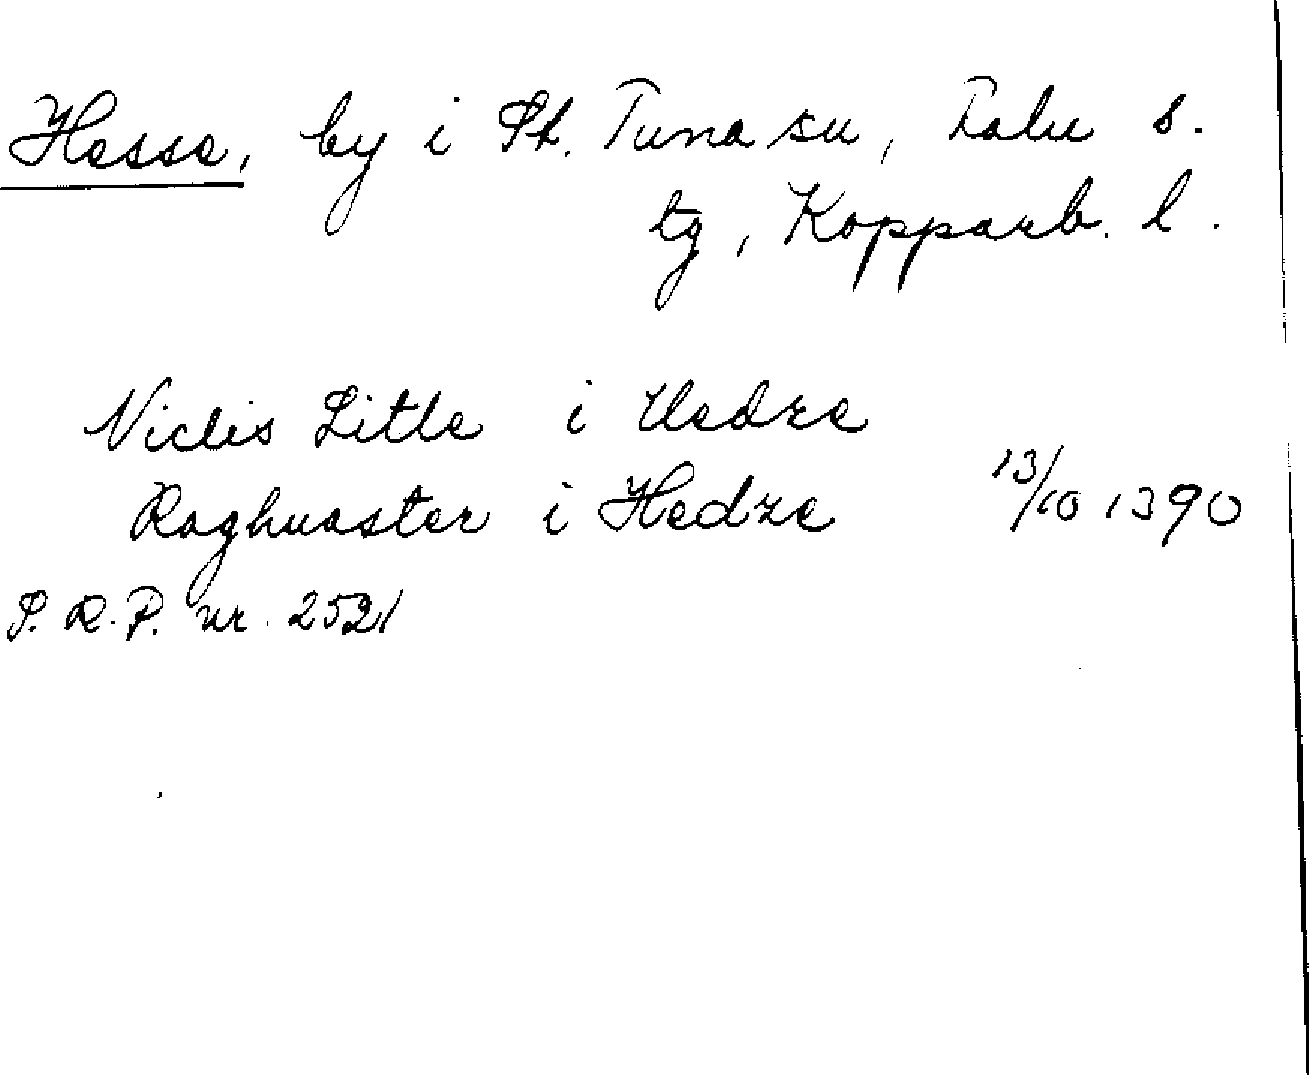 Hesse, by i St. Tuna sn, Falu s.
tg, Kopparb. l.
Niclis Litle i Hedze
Raghuaster i Hedze 13/10 1390
S. R. P. nr. 2521